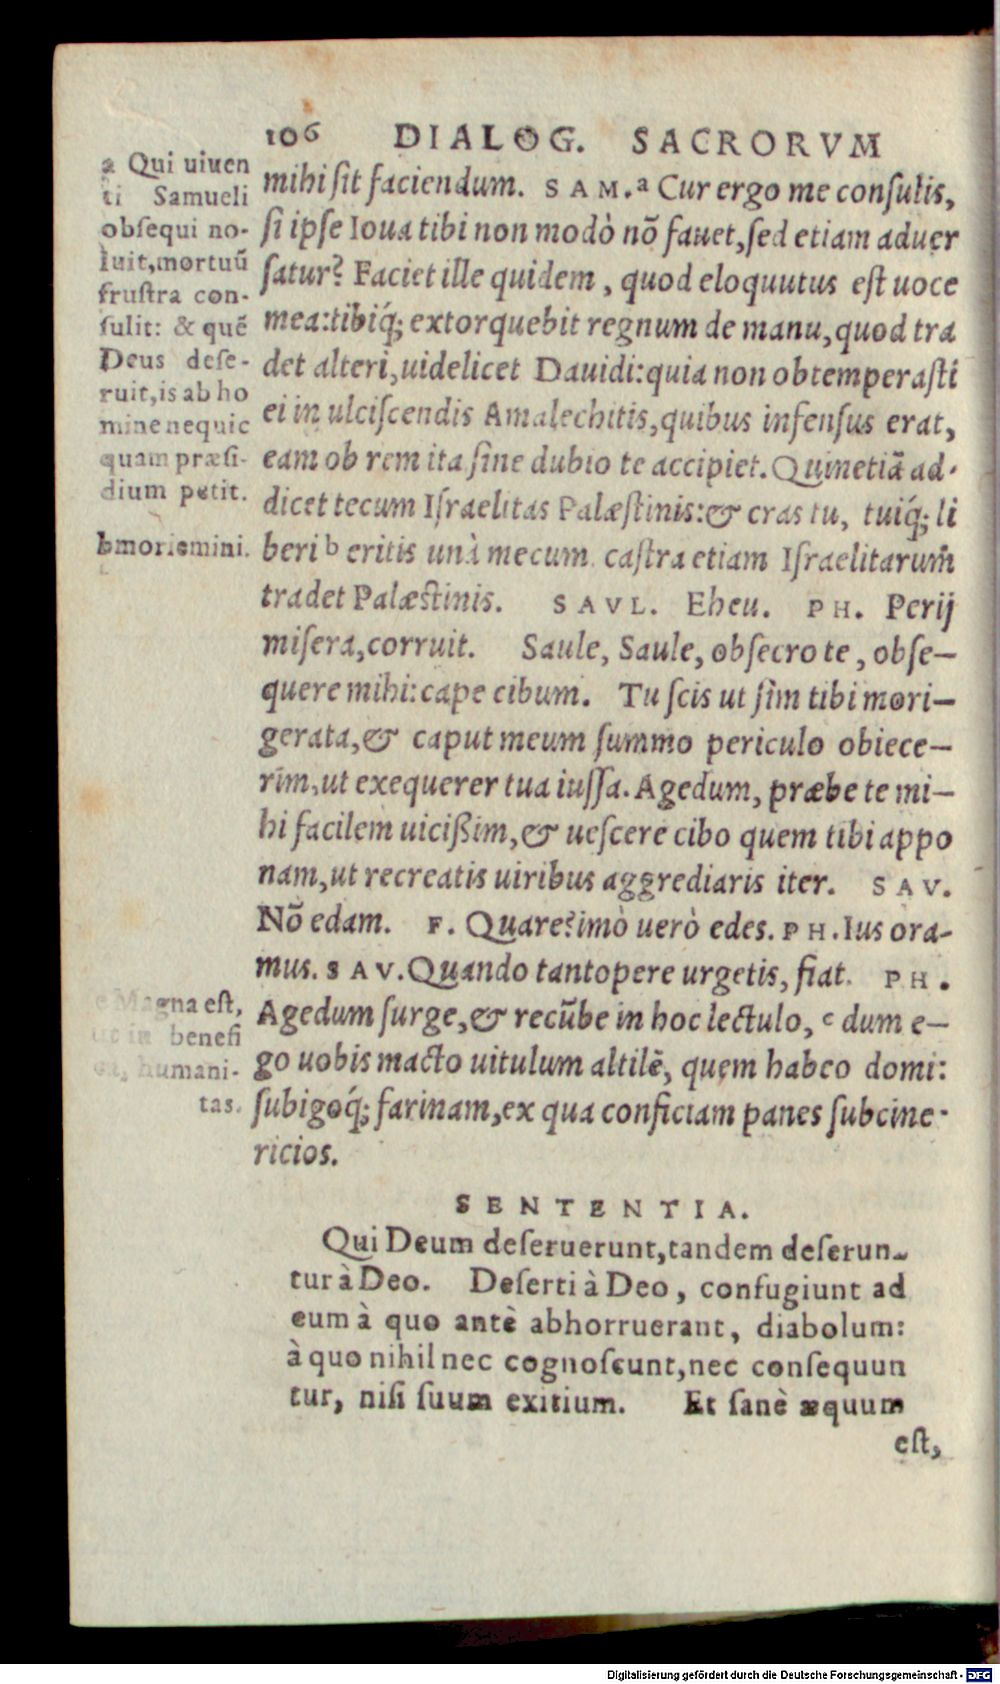 106 DIALOG. SACRORVM
a Qui uiuen
ti Samueli
obsequi no-
luit,mortuũ
frustra con-
sulit: & quẽ
Deus dese-
ruit,is ab ho
mine nequic
quam præsi-
dium petit.
b moriemini.
mihi sit faciendum. SAM.ª Cur ergo me consulis,
si ipse Ioua tibi non modò nõ fauet,sed etiam aduer
satur? Faciet ille quidem, quod eloquutus est uoce
mea:tibiq́; extorquebit regnum de manu,quod tra
det alteri,uidelicet Dauidi:quia non obtemperasti
ei in ulciscendis Amalechitis,quibus infensus erat,
eam ob rem ita sine dubio te accipiet. Quinetiã ad-
dicet tecum Israelitas Palæstinis:& cras tu, tuiq́; li
beri b eritis unà mecum castra etiam Israelitarum̃
tradet Palæstinis. SAVL. Eheu. PH. Perij
misera,corruit. Saule, Saule, obsecro te, obse-
quere mihi:cape cibum. Tu scis ut sim tibi mori-
gerata,& caput meum summo periculo obiece-
rim,ut exequerer tua iussa. Agedum, præbe te mi-
hi facilem uicißim,& uescere cibo quem tibi appo
nam,ut recreatis uiribus aggrediaris iter. SAV.
Nõ edam. F. Quare?imò uerò edes. PH. Ius ora-
mus. SAV. Quando tantopere urgetis, fiat. PH.
Agedum surge,& recũbe in hoc lectulo, c dum e-
go uobis macto uitulum altilẽ, quem habeo domi:
subigoq́; farinam,ex qua conficiam panes subcine-
ricios.
c Magna est,
ut in benefi
humani-
tas.
SENTENTIA.
Qui Deum deseruerunt,tandem deserun-
tur à Deo. Deserti à Deo, confugiunt ad
eum à quo antè abhorruerant, diabolum:
à quo nihil nec cognoscunt,nec consequun
tur, nisi suum exitium. Et sanè æquum
est,
Digitalisierung gefördert durch die Deutsche Forschungsgemeinschaft - DFG